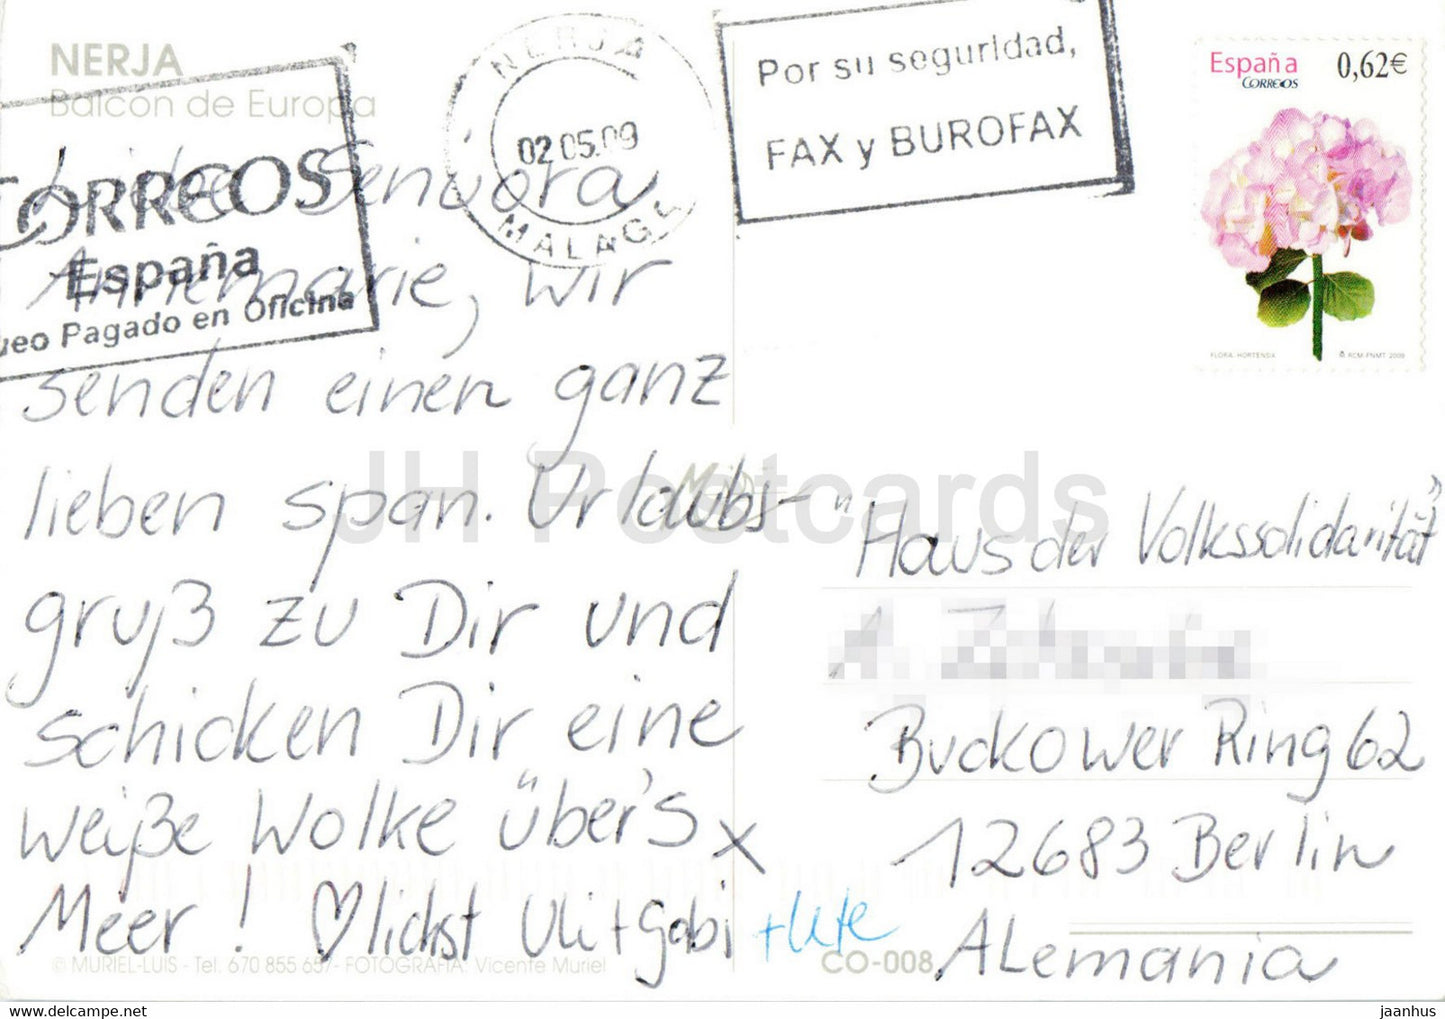 NERJA
Balcón de Europa
CORREOS
España
Pagado en Oficina
NERJA
02 05.09
MALAGA
Por su seguridad,
FAX y BUROFAX
España 0,62€
CORREOS
FLORA-HORTENSIA © RCM-FNMT 2009
Liebe Senuora
Annemarie, wir
senden einen ganz
lieben span. Urlaubs-
gruß zu Dir und
schicken Dir eine
weiße Wolke über's
Meer! ♡lichst Uli + Gabi + Ute
© MURIEL-LUIS - Tel. 670 855 657 - FOTOGRAFIA: Vicente Muriel
CO-008
"Haus der Volkssolidarität"
Buckower Ring 62
12683 Berlin
ALemania
JH Postcards
www.delcampe.net
jaanhus